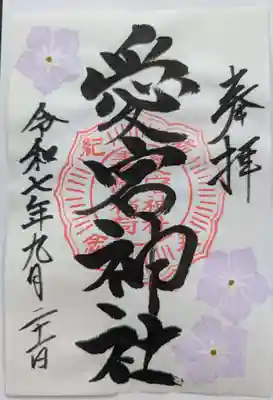 奉拝
愛宮神社
令和七年九月二十一日